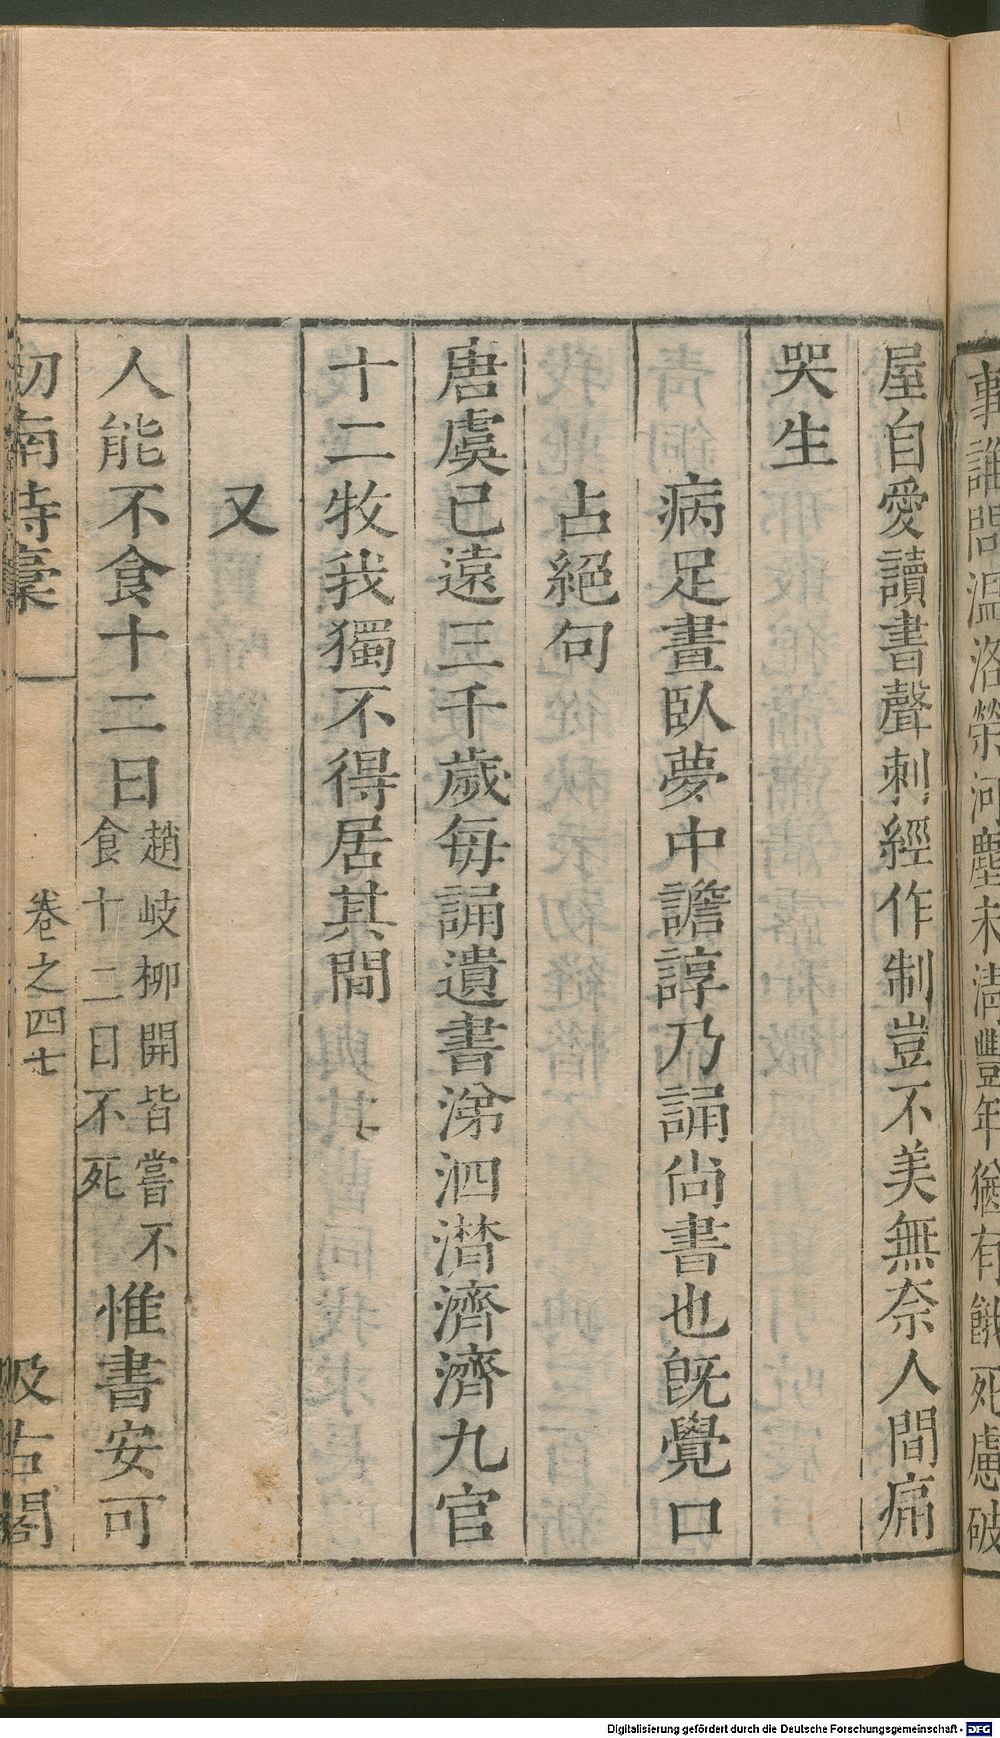 事誰問溫洛榮河塵未淸豐年猶有餓死慮破
屋自愛讀書聲刺經作制豈不美無奈人間痛
哭生
病足晝臥夢中譫諄乃誦尚書也旣覺口
占絕句
唐虞已遠三千歲每誦遺書涕泗潸濟濟九官
十二牧我獨不得居其間
又
人能不食十二日趙岐柳開皆嘗不食十二日不死惟書安可
劒南詩稾
卷之四七
汲古閣
Digitalisierung gefördert durch die Deutsche Forschungsgemeinschaft - DFG